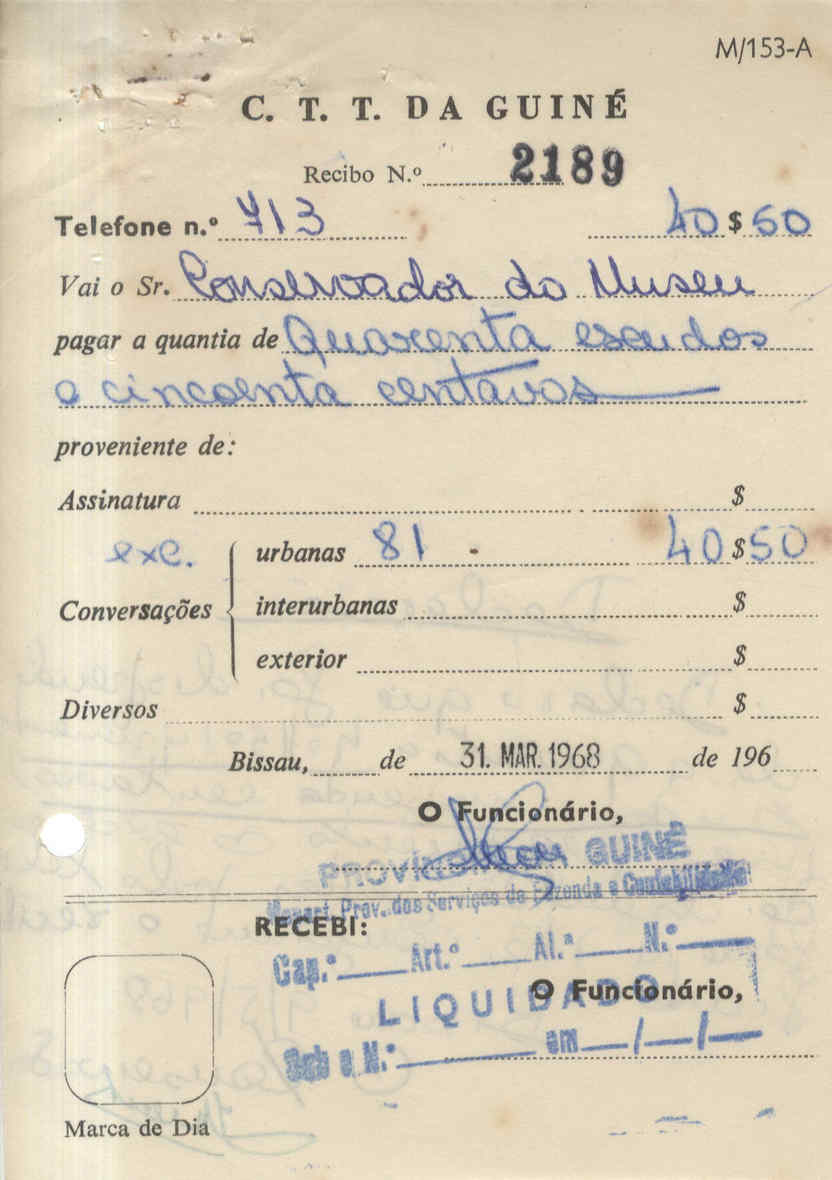 M/153-A
C. T. T. DA GUINÉ
Recibo N.º 2189
Telefone n.º 713 40 $ 50
Vai o Sr. Conservador do Museu
pagar a quantia de Quarenta escudos
e cincoenta centavos
proveniente de:
Assinatura $
exc. urbanas 81 - 40 $ 50
Conversações interurbanas $
exterior $
Diversos $
Bissau, de 31. MAR. 1968 de 196
O Funcionário,
PROVÍNCIA GUINÉ
Repart. Prov. dos Serviços de Fazenda e Contabilidade
RECEBI:
Cap.º Art.º Al.ª N.º
LIQUIDADO
O Funcionário,
Sob o N.º em / /
Marca de Dia